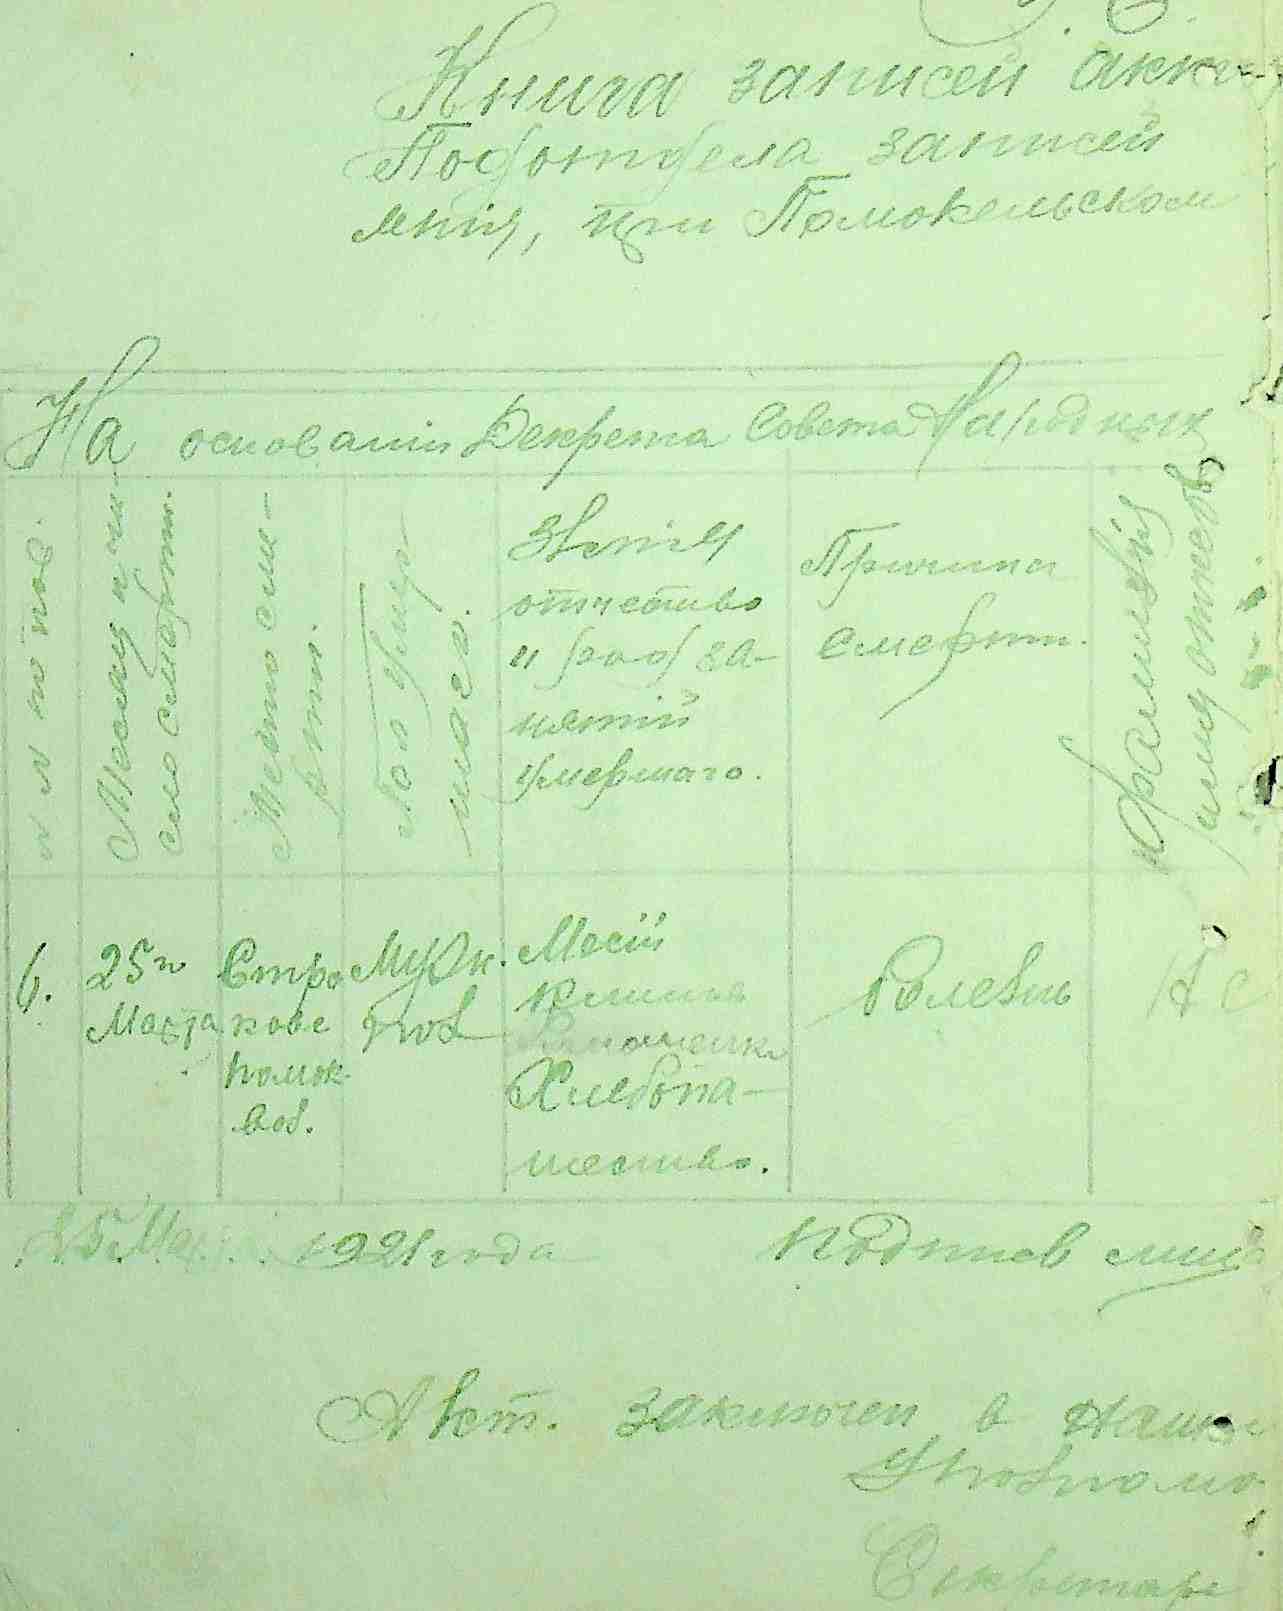 Книга записей акто
Подотдела записей
ния, при Помокельском
На основании Декрета Совета Народных
№ по пор.
Месяц и чи-
сло смерти.
Место сме-
рти.
Пол умер-
шаго.
Имя
отчество
и род за-
нятий
умершаго.
Причина
смерти.
Фамилія
имя отчество
6.
25го
Марта
Стро
кове
помок.
вол.
Мужс.
пол
Мосій
Хлебопа-
шество.
Болезнь
Не
25 Мар 1921 года
Подписв лица
Акт. заключен в
Секретарь